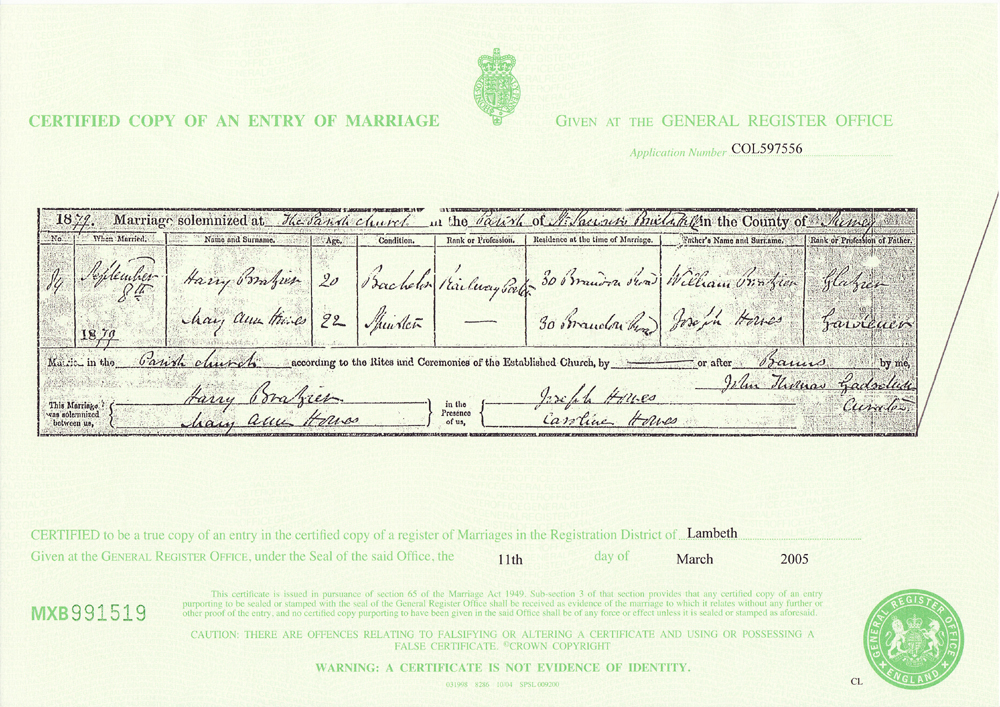 CERTIFIED COPY OF AN ENTRY OF MARRIAGE
GIVEN AT THE GENERAL REGISTER OFFICE
Application Number COL597556
1879. Marriage solemnized at The Parish church in the Parish of in the County of Surrey
No When Married. Name and Surname. Age. Condition. Rank or Profession. Residence at the time of Marriage. Father's Name and Surname. Rank or Profession of Father.
September 8th Harry Brazier 20 Bachelor Railway Porter 30 Brandon Road William Brazier Glazier
1879 Mary Ann Howes 22 Spinster — 30 Brandon Road Joseph Howes Gardener
Married in the Parish church according to the Rites and Ceremonies of the Established Church, by — or after Banns by me,
John Thomas
Curate
This Marriage was solemnized between us,
Harry Brazier
Mary Ann Howes
in the Presence of us,
Joseph Howes
Caroline Howes
CERTIFIED to be a true copy of an entry in the certified copy of a register of Marriages in the Registration District of Lambeth
Given at the GENERAL REGISTER OFFICE, under the Seal of the said Office, the 11th day of March 2005
MXB991519
This certificate is issued in pursuance of section 65 of the Marriage Act 1949. Sub-section 3 of that section provides that any certified copy of an entry
purporting to be sealed or stamped with the seal of the General Register Office shall be received as evidence of the marriage to which it relates without any further or
other proof of the entry, and no certified copy purporting to have been given in the said Office shall be of any force or effect unless it is sealed or stamped as aforesaid.
CAUTION: THERE ARE OFFENCES RELATING TO FALSIFYING OR ALTERING A CERTIFICATE AND USING OR POSSESSING A
FALSE CERTIFICATE. ©CROWN COPYRIGHT
WARNING: A CERTIFICATE IS NOT EVIDENCE OF IDENTITY.
031998 8286 10/04 SPSL 009200
CL
GENERAL REGISTER OFFICE
ENGLAND